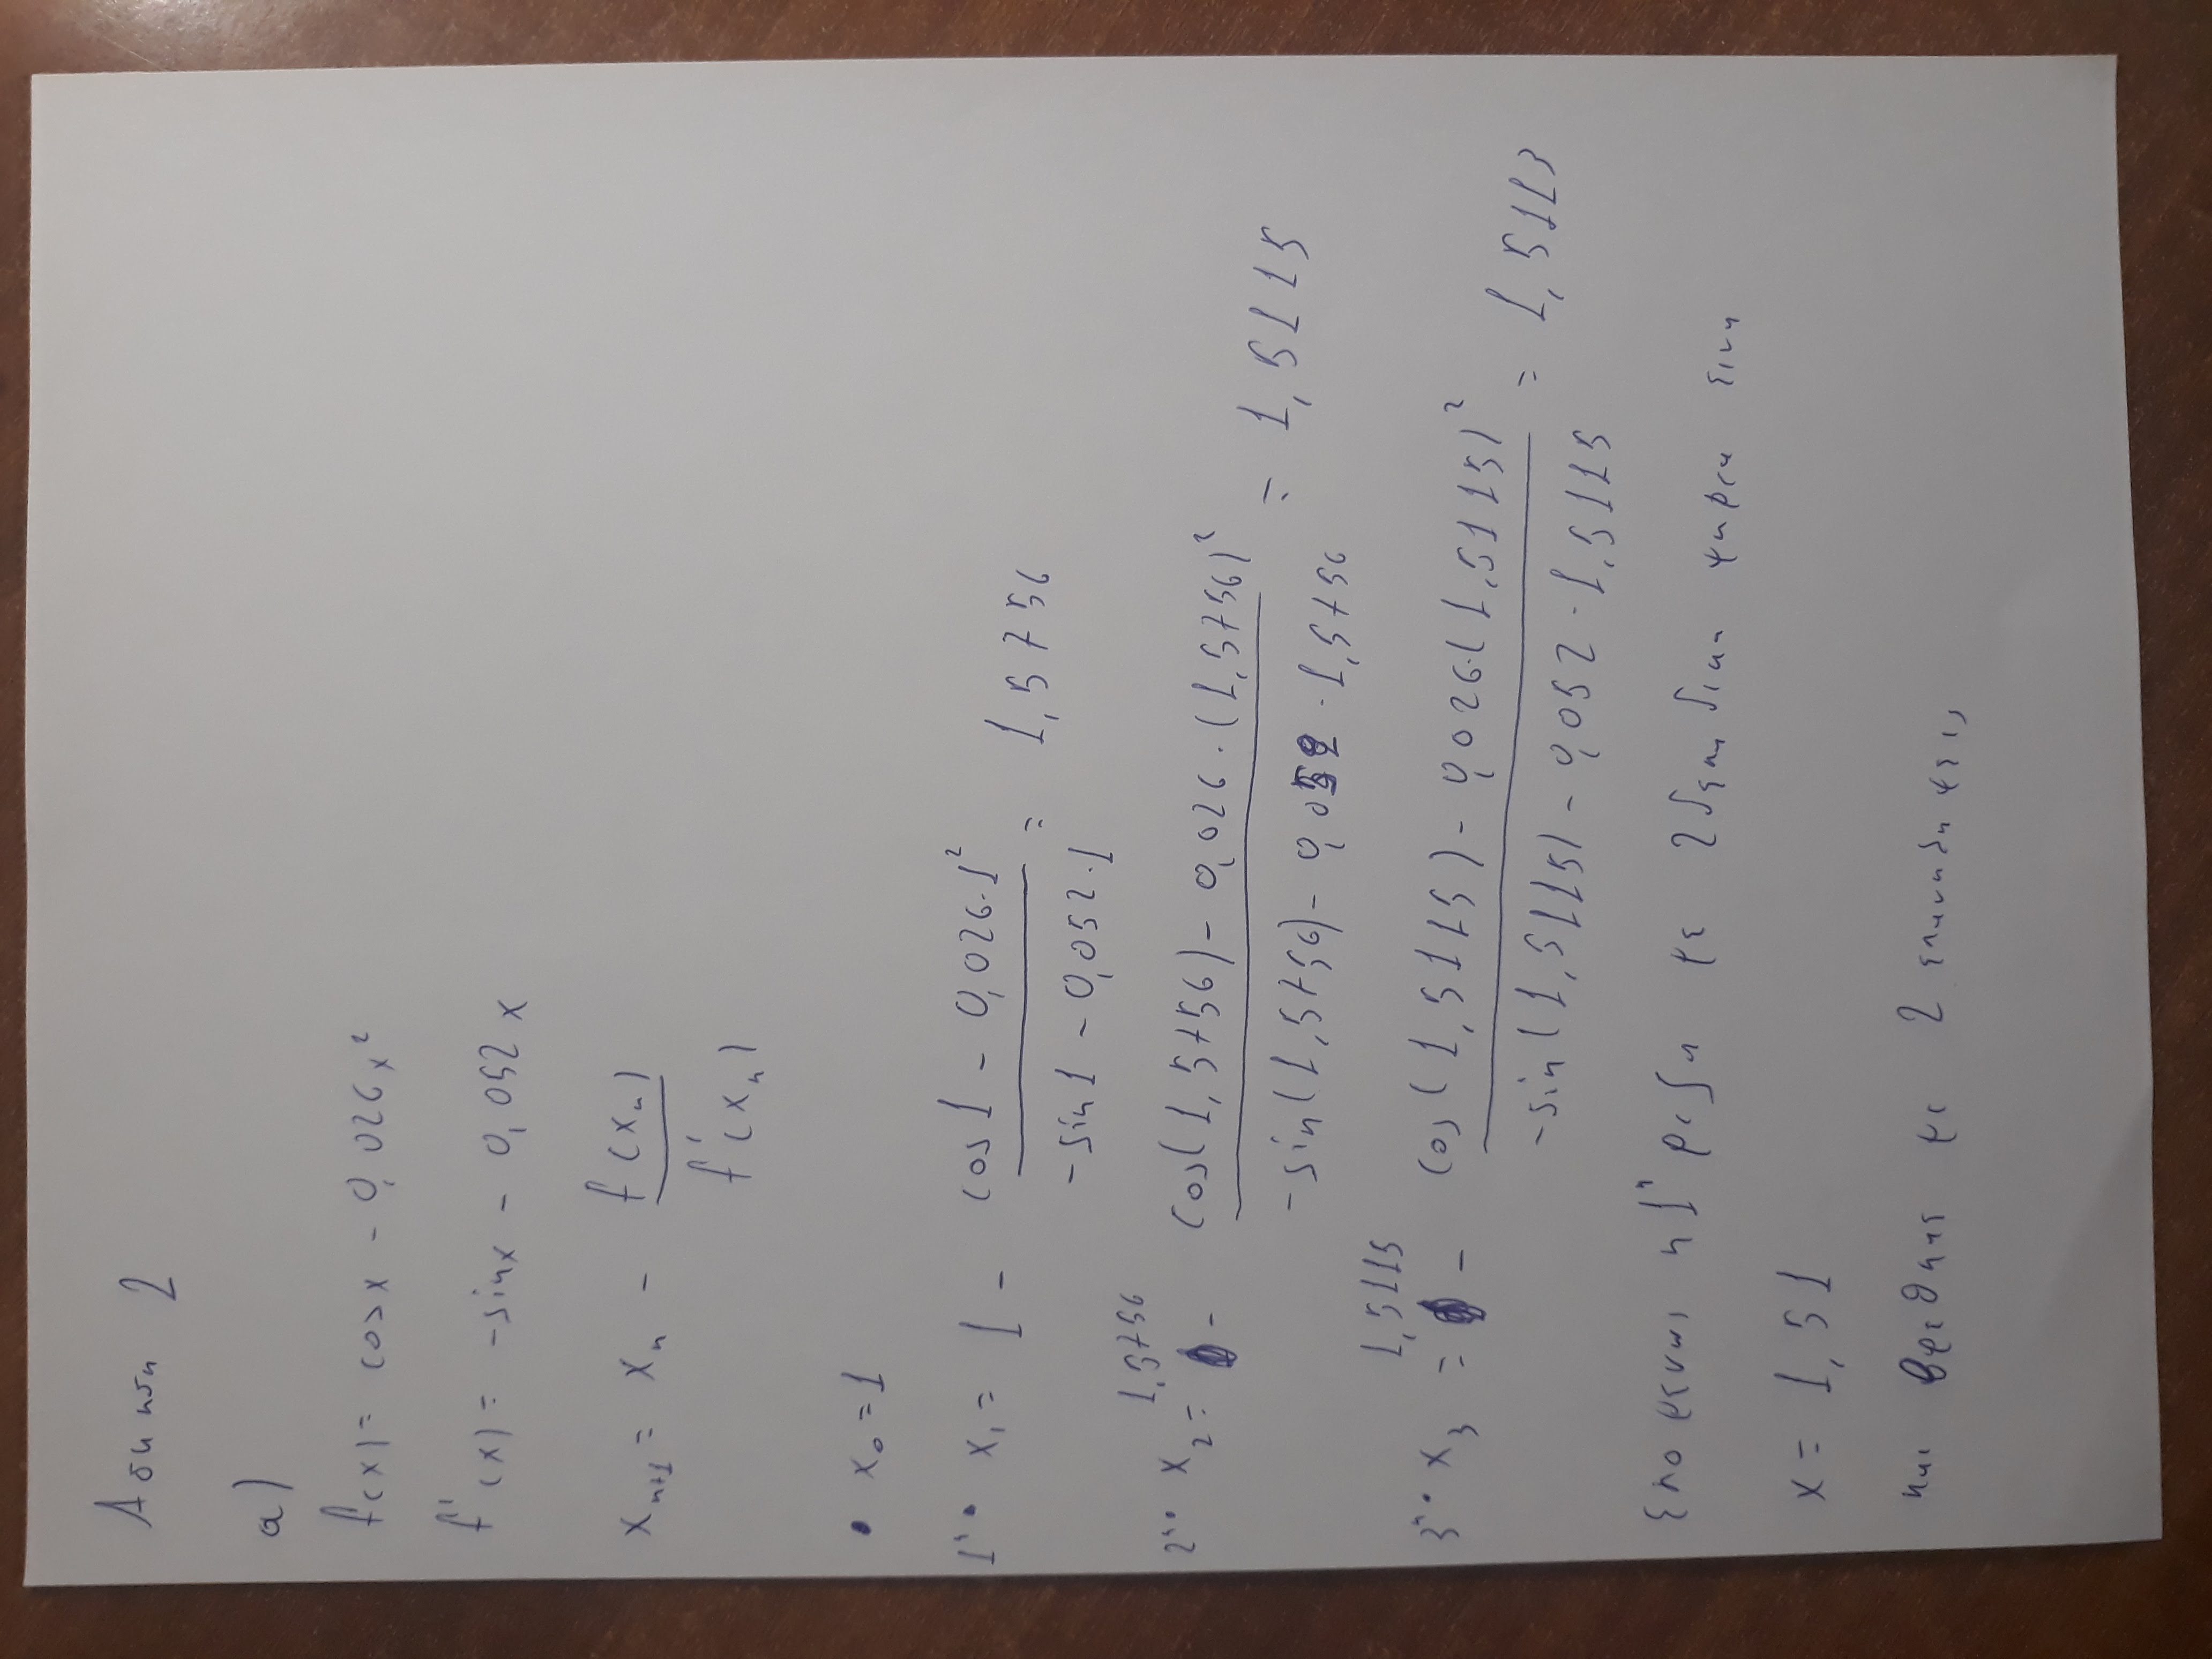 Άσκηση 2
α)
f(x) = cosx - 0,026x²
f'(x) = -sinx - 0,052x
xₙ₊₁ = xₙ - f(xₙ) / f'(xₙ)
• x₀ = 1
1η • x₁ = 1 - (cos1 - 0,026·1²) / (-sin1 - 0,052·1) = 1,5756
2η • x₂ = 1,5756 - (cos(1,5756) - 0,026·(1,5756)²) / (-sin(1,5756) - 0,052·1,5756) = 1,5115
3η • x₃ = 1,5115 - (cos(1,5115) - 0,026·(1,5115)²) / (-sin(1,5115) - 0,052·1,5115) = 1,5113
Επομενως η 1η ριζα με 2 δεκαδικα ψηφια ειναι
x = 1,51
και βρεθηκε με 2 επαναληψεις